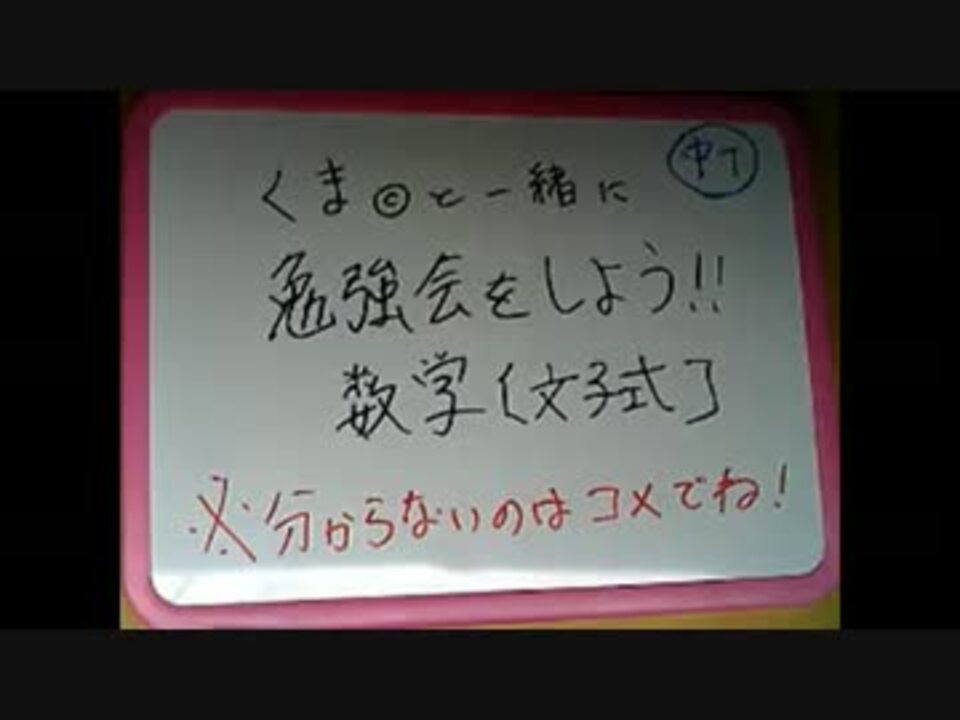 中1
くま©と一緒に
勉強会をしよう!!
数学〔文子式〕
※分からないのはコメでね!